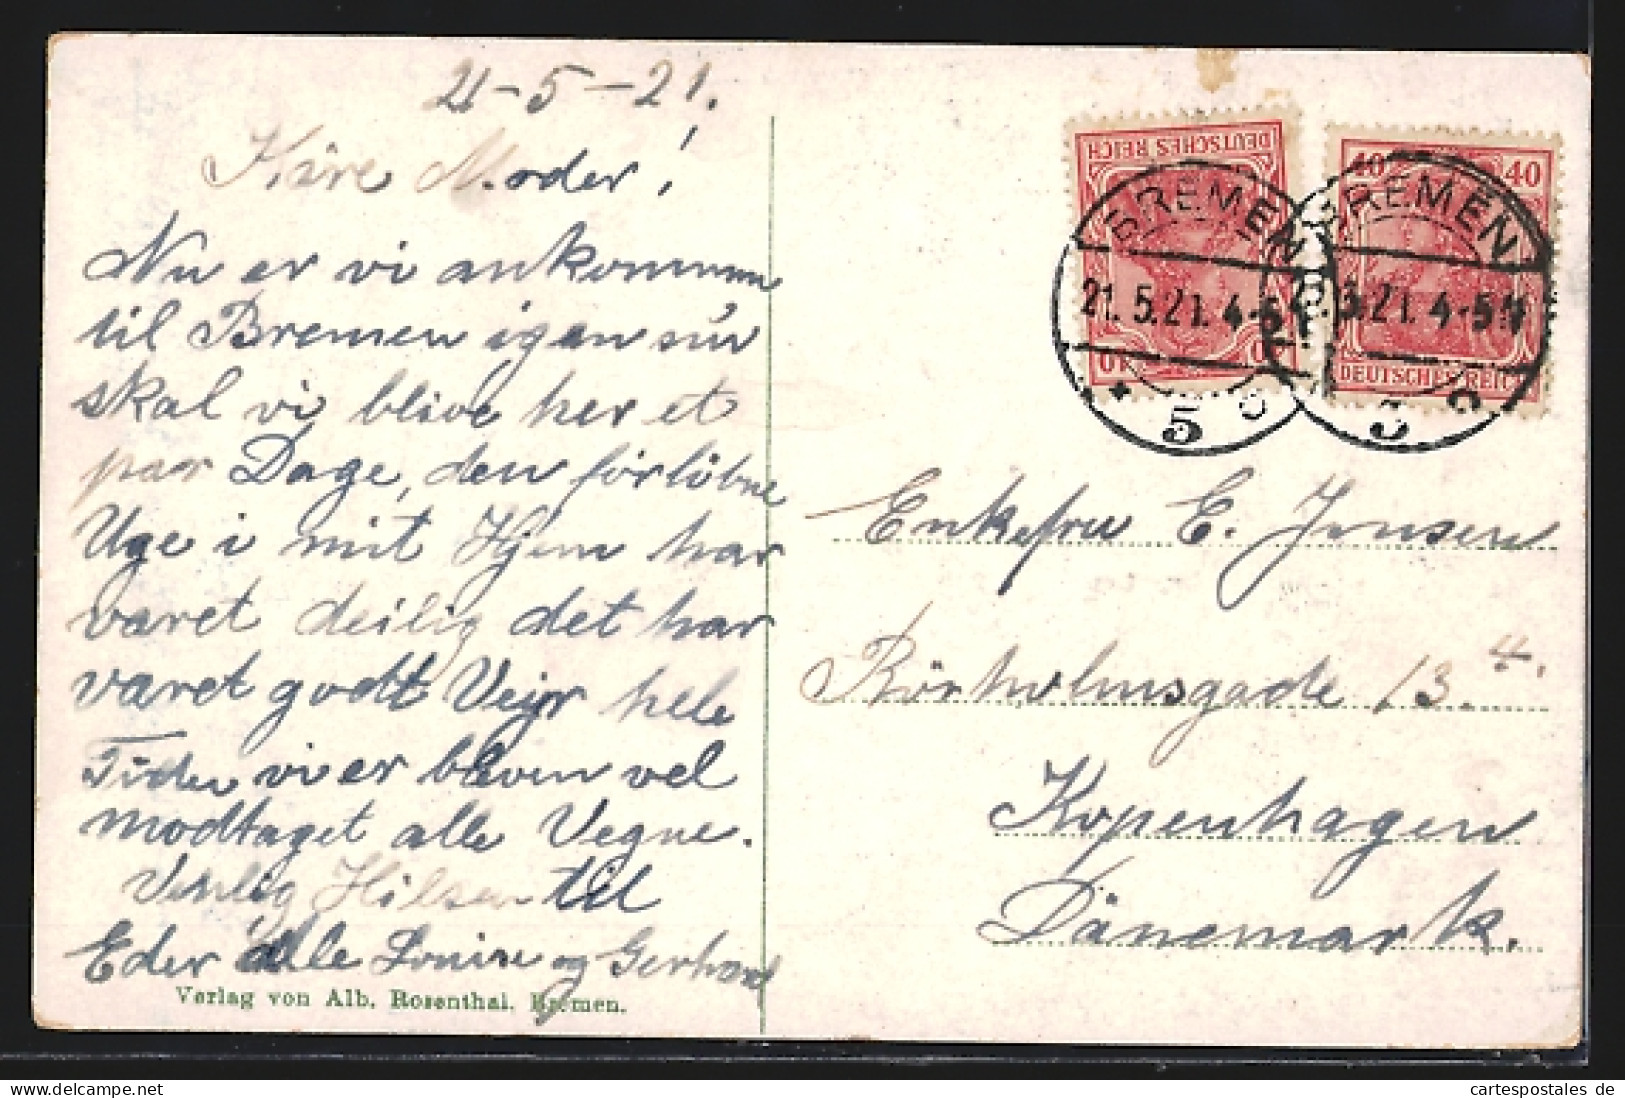 21-5-21.
Kære Moder!
Nu er vi ankommen
til Bremen igen nu
skal vi blive her et
par Dage, den forløbne
Uge i mit Hjem har
været deilig det har
været godt Vejr hele
Tiden vi er bleven vel
modtaget alle Vegne.
Venlig Hilsen til
Eder alle Louise og Gerhard
Verlag von Alb. Rosenthal. Bremen.
DEUTSCHES REICH
40
BREMEN
21.5.21. 4-5
* 5 c
40 40
BREMEN
21.5.21. 4-5N
DEUTSCHES REICH
5 c
Enkefru E. Jensen
13.4.
Kopenhagen
Dänemark.
cartespostales de